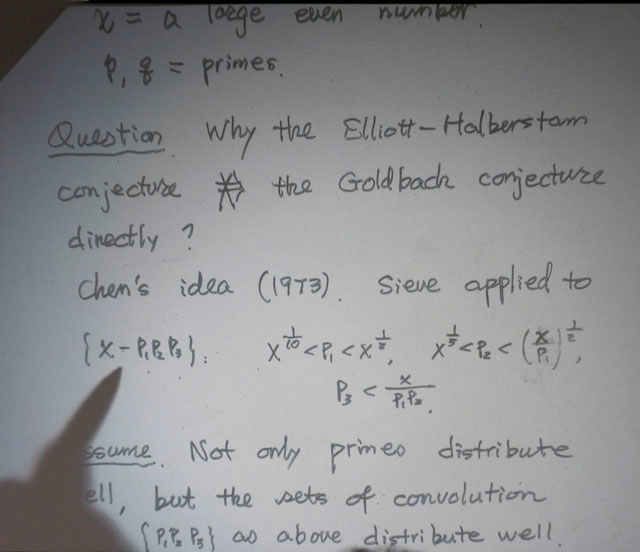 x = a large even number.
p, q = primes.
Question. Why the Elliott-Halberstam
conjecture ⇏ the Goldbach conjecture
directly ?
Chen's idea (1973). Sieve applied to
{x - P₁P₂P₃}. x^{1/10} < P₁ < x^{1/3}, x^{1/3} < P₂ < (x/P₁)^{1/2},
P₃ < x/(P₁P₂).
ssume. Not only primes distribute
ell, but the sets of convolution
{P₁P₂P₃} as above distribute well.